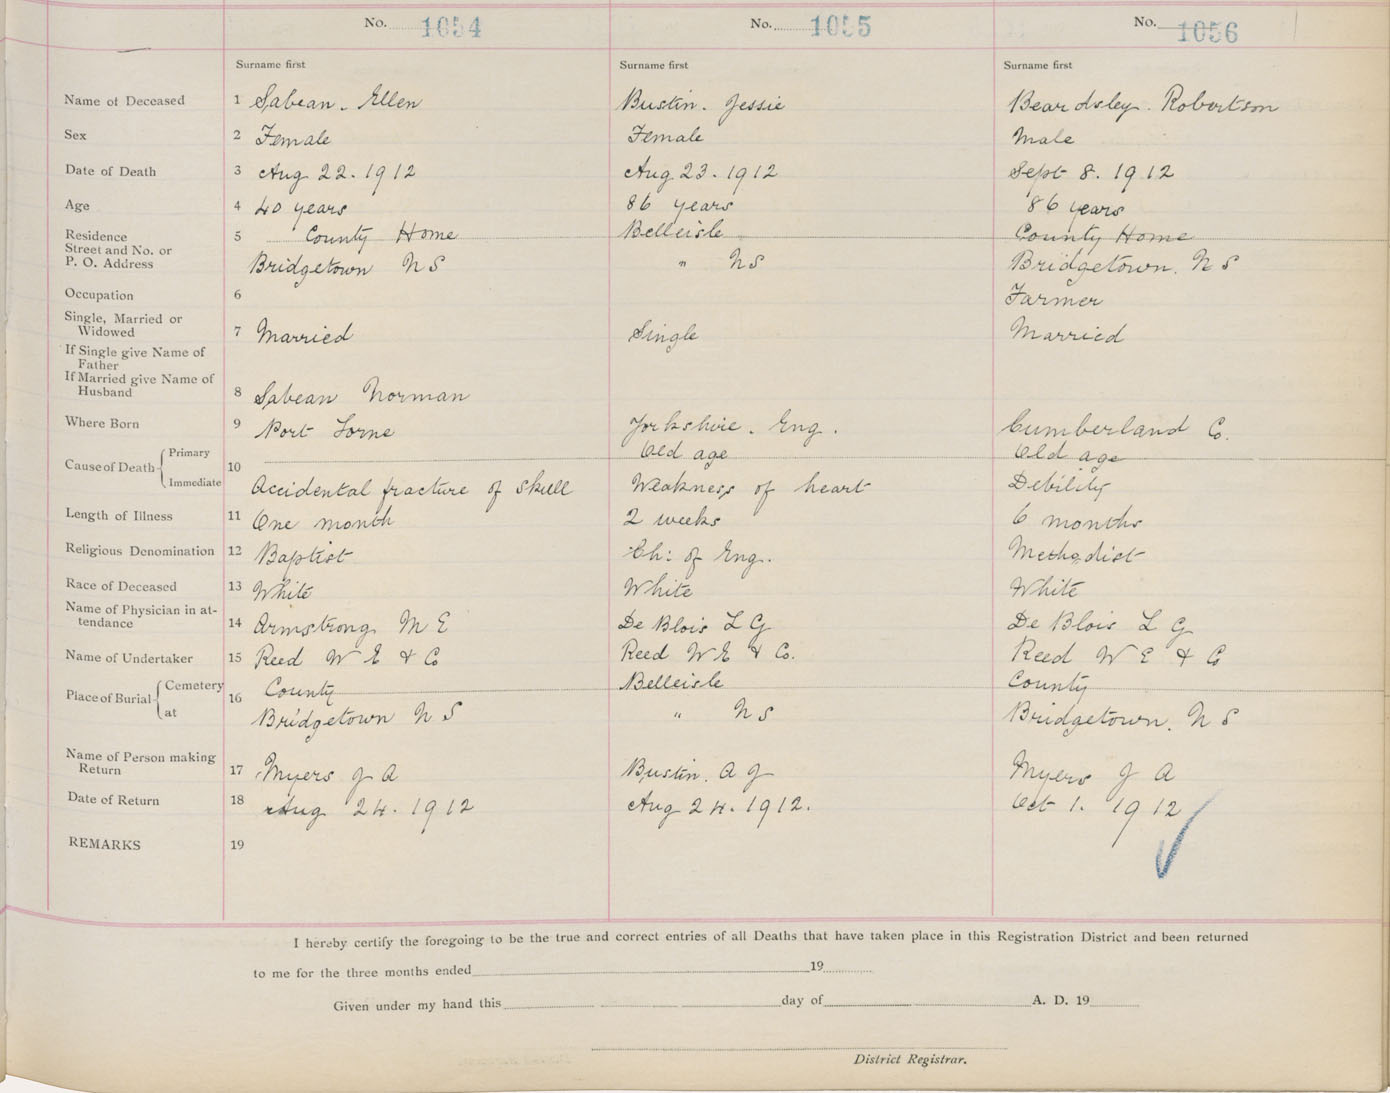 No. 1054 No. 1055 No. 1056
Surname first Surname first Surname first
Name of Deceased 1 Sabean. Ellen Bustin. Jessie Beardsley. Robertson
Sex 2 Female Female Male
Date of Death 3 Aug 22. 1912 Aug 23. 1912 Sept 8. 1912
Age 4 40 years 86 years 86 years
Residence 5 County Home Belleisle County Home
Street and No. or
P. O. Address Bridgetown N S " N S Bridgetown. N S
Occupation 6 Farmer
Single, Married or
Widowed 7 Married Single Married
If Single give Name of
Father
If Married give Name of
Husband 8 Sabean Norman
Where Born 9 Port Lorne Yorkshire. Eng. Cumberland Co.
Cause of Death Primary 10 Old age Old age
Immediate Accidental fracture of skull Weakness of heart Debility
Length of Illness 11 One month 2 weeks 6 months
Religious Denomination 12 Baptist Ch: of Eng. Methodist
Race of Deceased 13 White White White
Name of Physician in at-
tendance 14 Armstrong M E De Blois L G De Blois L G
Name of Undertaker 15 Reed W E & Co Reed W E & Co. Reed W E & Co
Place of Burial Cemetery 16 County Belleisle County
at Bridgetown N S " N S Bridgetown. N S
Name of Person making
Return 17 Myers J A Bustin. A J Myers J A
Date of Return 18 Aug 24. 1912 Aug 24. 1912. Oct 1. 1912
REMARKS 19
I hereby certify the foregoing to be the true and correct entries of all Deaths that have taken place in this Registration District and been returned
to me for the three months ended 19
Given under my hand this day of A. D. 19
District Registrar.